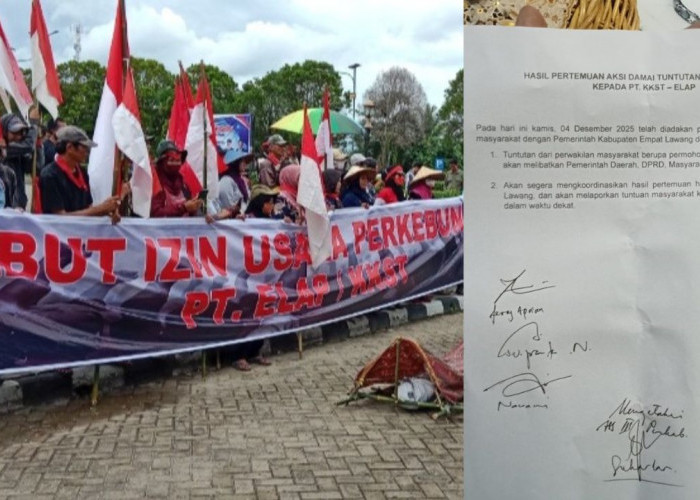 BUT IZIN USAHA PERKEBUN
PT. ELAP / KKST
HASIL PERTEMUAN AKSI DAMAI TUNTUTAN
KEPADA PT. KKST – ELAP
Pada hari ini kamis, 04 Desember 2025 telah diadakan p
masyarakat dengan Pemerintah Kabupaten Empat Lawang d
1. Tuntutan dari perwakilan masyarakat berupa permoho
akan melibatkan Pemerintah Daerah, DPRD, Masyara
2. Akan segera mengkoordinasikan hasil pertemuan h
Lawang, dan akan melaporkan tuntuan masyarakat k
dalam waktu dekat.
Mengetahui